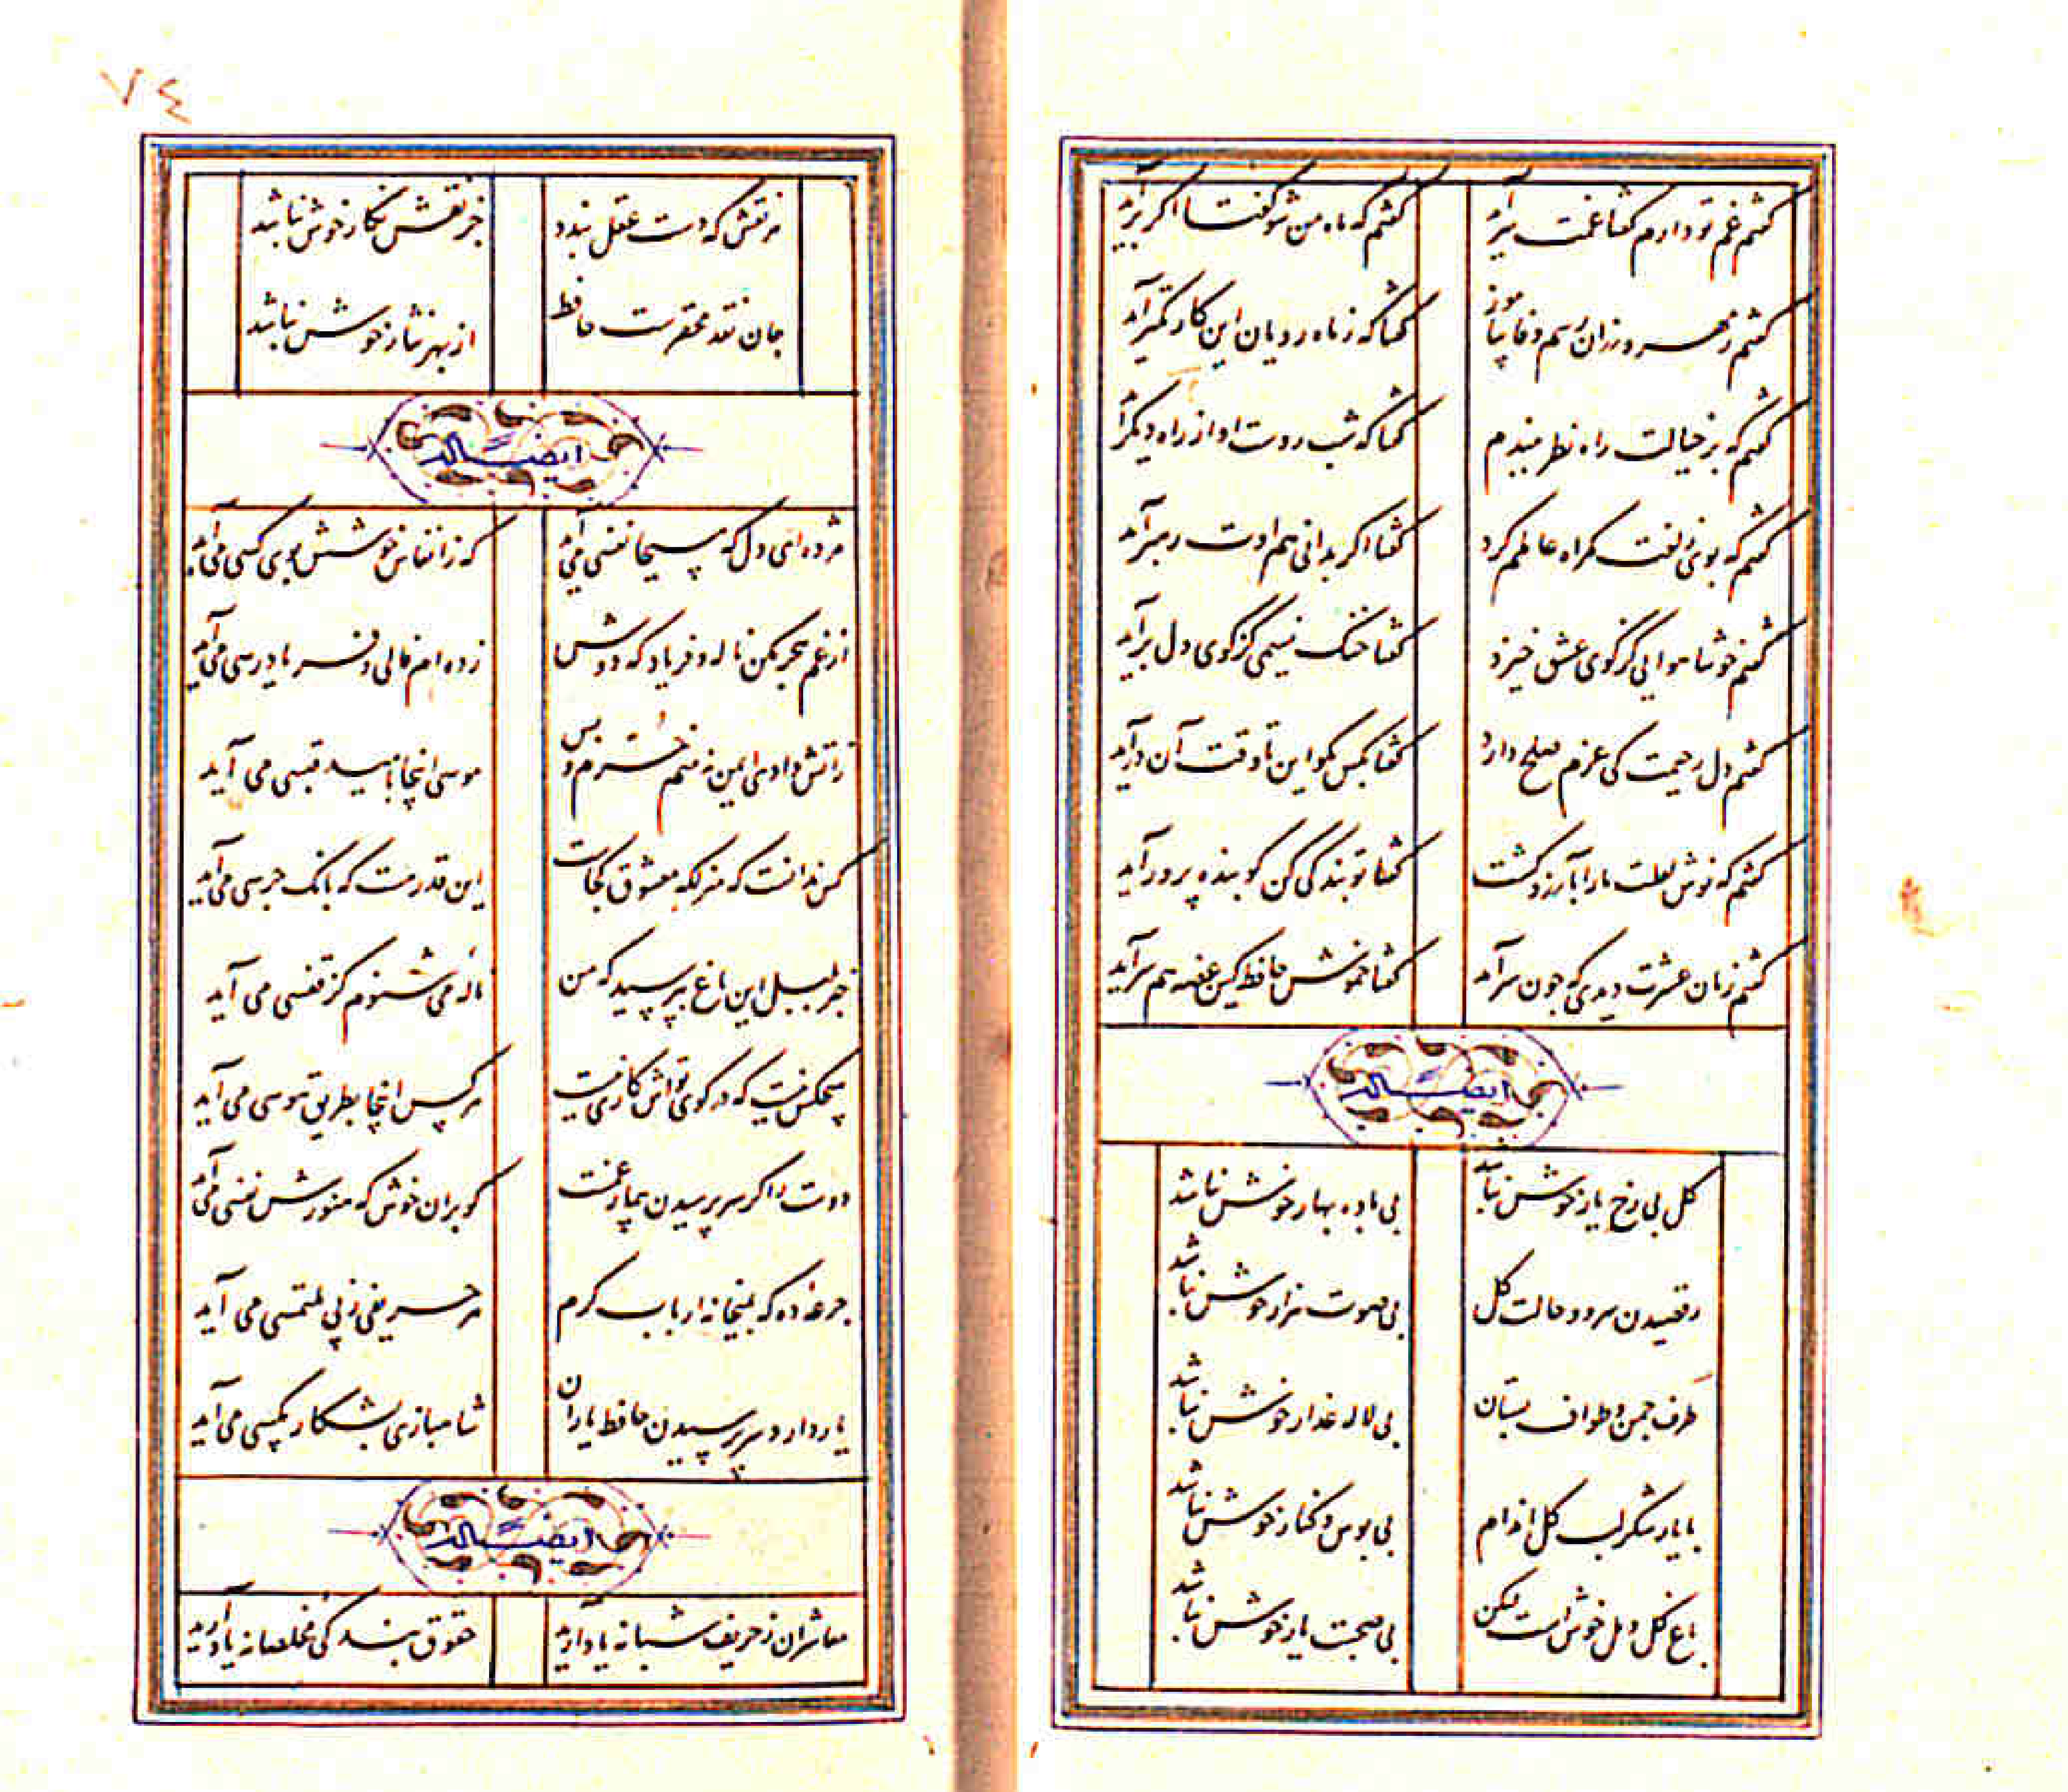 گفتم غم تو دارم گفتا غمت سرآید
گفتم که ماه من شو گفتا اگر برآید
گفتم ز مهرورزان رسم وفا بیاموز
گفتا که ز ماه رویان این کار کمتر آید
گفتم که بر خیالت راه نظر ببندم
گفتا که شب روست او از راه دیگر آید
گفتم که بوی زلفت گمراه عالمم کرد
گفتا اگر بدانی هم اوت رهبر آید
گفتم خوشا هوایی کز کوی عشق خیزد
گفتا خنک نسیمی کز کوی دل برآید
گفتم دل رحیمت کی عزم صلح دارد
گفتا بکس مگو این تا وقت آن درآید
گفتم که نوش لعلت ما را بآرزو کشت
گفتا تو بندگی کن کو بنده پرور آید
گفتم زمان عشرت دیدی که چون سرآمد
گفتا خموش حافظ کین غصه هم سرآید
ایضاً له
گل بی رخ یار خوش نباشد
بی باده بهار خوش نباشد
رقصیدن سرو و حالت گل
بی صوت هزار خوش نباشد
طرف چمن و طواف بستان
بی لاله عذار خوش نباشد
با یار شکر لب گل اندام
بی بوس و کنار خوش نباشد
باغ گل و مل خوش است لیکن
بی صحبت یار خوش نباشد
٧٤
هر نقش که دست عقل بندد
جز نقش نگار خوش نباشد
جان نقد محقرست حافظ
از بهر نثار خوش نباشد
ایضاً له
مژده ای دل که مسیحا نفسی می آید
که ز انفاس خوشش بوی کسی می آید
از غم هجر مکن ناله و فریاد که دوش
زده ام فالی و فریادرسی می آید
ز آتش وادی ایمن نه منم خرم و بس
موسی اینجا بامید قبسی می آید
کس ندانست که منزلگه معشوق کجاست
این قدر هست که بانگ جرسی می آید
خبر بلبل این باغ بپرسید که من
ناله می شنوم کز قفسی می آید
هیچکس نیست که در کوی تواش کاری نیست
هر کس اینجا بطریق هوسی می آید
دوست را گر سر پرسیدن بیمار غمست
گو بران خوش که هنوزش نفسی می آید
جرعه ده که بمیخانه ارباب کرم
هر حریفی ز پی ملتمسی می آید
یار دارد سر پرسیدن حافظ یاران
شاهبازی بشکار مگسی می آید
ایضاً له
معاشران ز حریف شبانه یاد آرید
حقوق بندگی مخلصانه یاد آرید